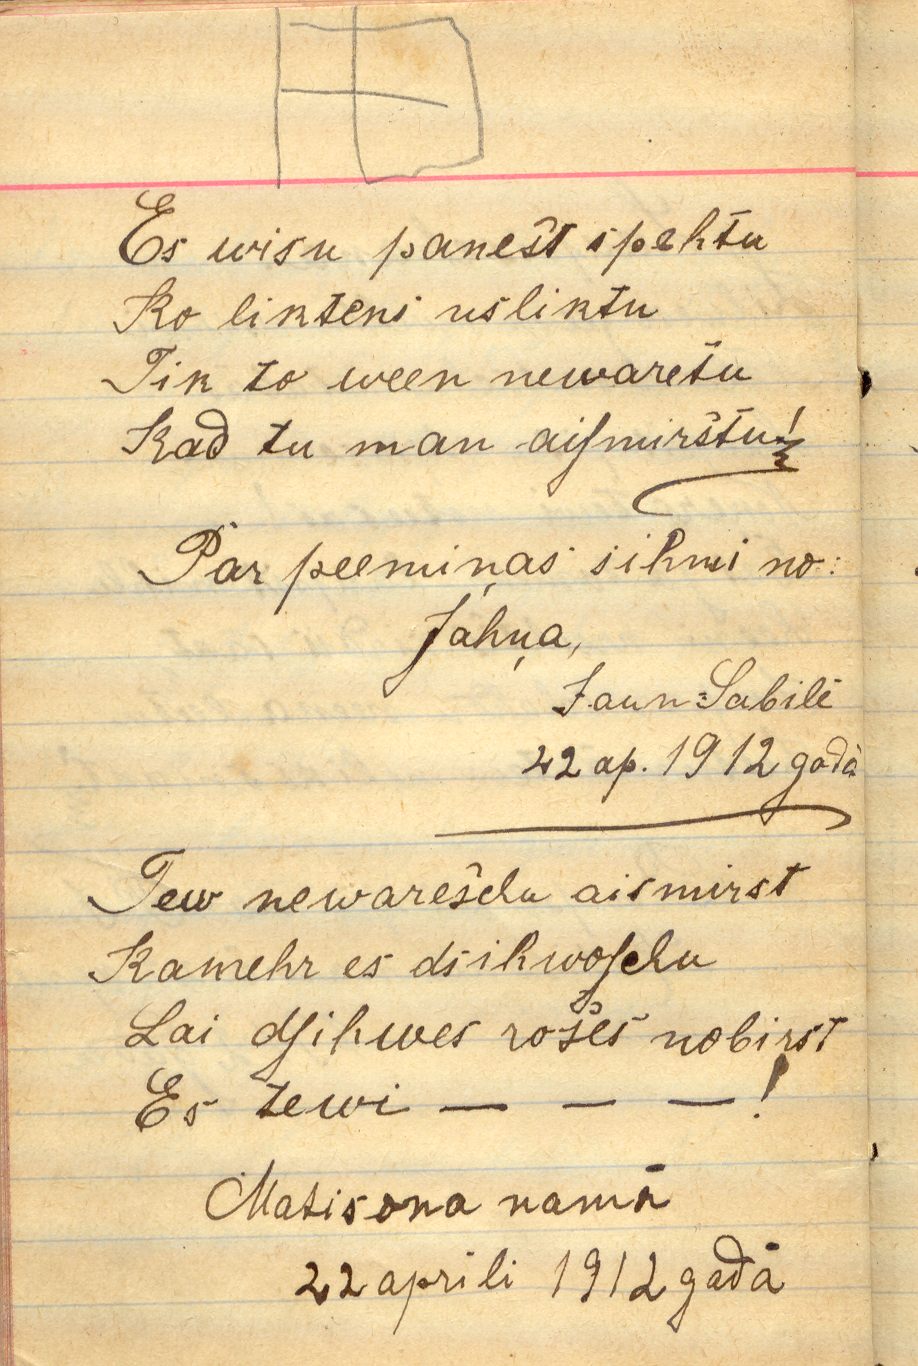 Es wisu panešt spehtu
Ko liktens usliktu
Tik to ween newaretu
Kad tu man aiſmirštu!
Par peemiņas sihmi no:
Jahņa,
Jaun-Sabilē
22 ap. 1912 gadā
Tew newarešchu aismirst
Kamehr es dsihwoſchu
Lai dſihwes rošes nobirst
Es tewi — — —!
Matisona namā
22 aprili 1912 gadā